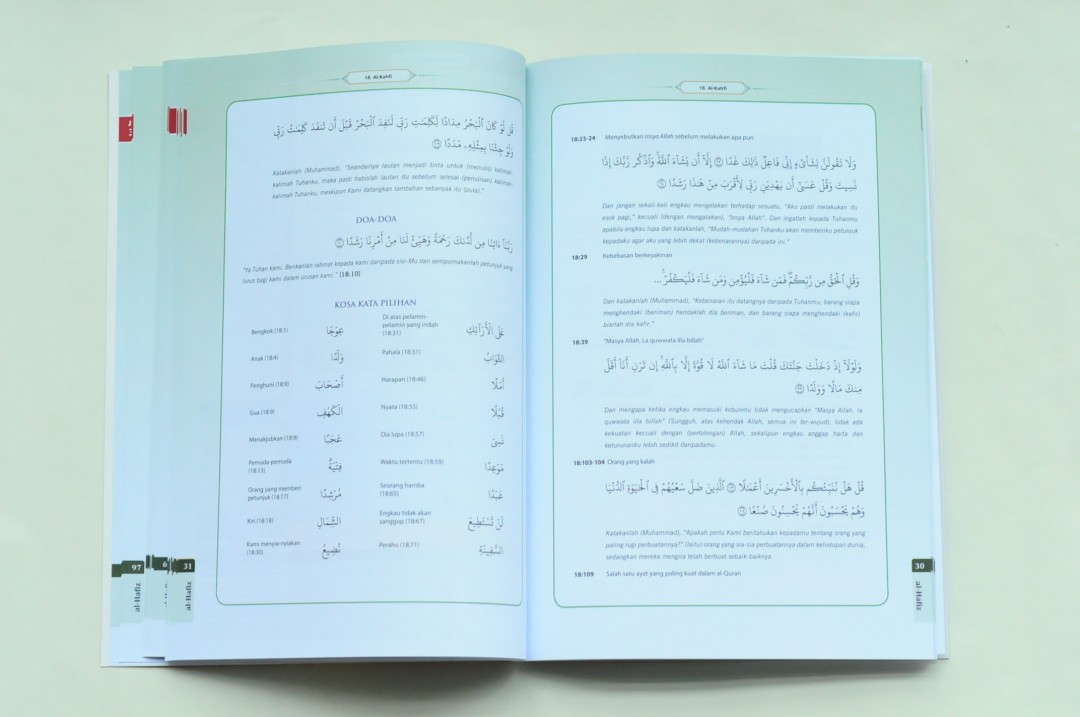 18. Al-Kahfi
18:23-24 Menyebutkan Insya Allah sebelum melakukan apa pun
وَلَا تَقُولَنَّ لِشَا۟ىْءٍ إِنِّى فَاعِلٌ ذَٰلِكَ غَدًا ۝ إِلَّآ أَن يَشَآءَ ٱللَّهُ وَٱذْكُر رَّبَّكَ إِذَا
نَسِيتَ وَقُلْ عَسَىٰٓ أَن يَهْدِيَنِ رَبِّى لِأَقْرَبَ مِنْ هَٰذَا رَشَدًا ۝
Dan jangan sekali-kali engkau mengatakan terhadap sesuatu, "Aku pasti melakukan itu
esok pagi," kecuali (dengan mengatakan), "Insya Allah". Dan ingatlah kepada Tuhanmu
apabila engkau lupa dan katakanlah, "Mudah-mudahan Tuhanku akan memberiku petunjuk
kepadaku agar aku yang lebih dekat (kebenarannya) daripada ini."
18:29 Kebebasan berkeyakinan
وَقُلِ ٱلْحَقُّ مِن رَّبِّكُمْ ۖ فَمَن شَآءَ فَلْيُؤْمِن وَمَن شَآءَ فَلْيَكْفُرْ ۚ ...
Dan katakanlah (Muhammad), "Kebenaran itu datangnya daripada Tuhanmu; barang siapa
menghendaki (beriman) hendaklah dia beriman, dan barang siapa menghendaki (kafir)
biarlah dia kafir."
18:39 "Masya Allah, La quwwata illa billah"
وَلَوْلَآ إِذْ دَخَلْتَ جَنَّتَكَ قُلْتَ مَا شَآءَ ٱللَّهُ لَا قُوَّةَ إِلَّا بِٱللَّهِ ۚ إِن تَرَنِ أَنَا۠ أَقَلَّ
مِنكَ مَالًا وَوَلَدًا ۝
Dan mengapa ketika engkau memasuki kebunmu tidak mengucapkan "Masya Allah, la
quwwata illa billah" (Sungguh, atas kehendak Allah, semua ini ter-wujud), tidak ada
kekuatan kecuali dengan (pertolongan) Allah, sekalipun engkau anggap harta dan
keturunanku lebih sedikit daripadamu.
18:103-104 Orang yang kalah
قُلْ هَلْ نُنَبِّئُكُم بِٱلْأَخْسَرِينَ أَعْمَٰلًا ۝ ٱلَّذِينَ ضَلَّ سَعْيُهُمْ فِى ٱلْحَيَوٰةِ ٱلدُّنْيَا
وَهُمْ يَحْسَبُونَ أَنَّهُمْ يُحْسِنُونَ صُنْعًا ۝
Katakanlah (Muhammad), "Apakah perlu Kami beritahukan kepadamu tentang orang yang
paling rugi perbuatannya?" (Iaitu) orang yang sia-sia perbuatannya dalam kehidupan dunia,
sedangkan mereka mengira telah berbuat sebaik-baiknya.
18:109 Salah satu ayat yang paling kuat dalam al-Quran
30
al-Hafiz
18. Al-Kahfi
قُل لَّوْ كَانَ ٱلْبَحْرُ مِدَادًا لِّكَلِمَٰتِ رَبِّى لَنَفِدَ ٱلْبَحْرُ قَبْلَ أَن تَنفَدَ كَلِمَٰتُ رَبِّى
وَلَوْ جِئْنَا بِمِثْلِهِۦ مَدَدًا ۝
Katakanlah (Muhammad), "Seandainya lautan menjadi tinta untuk (menulis) kalimah-
kalimah Tuhanku, maka pasti habislah lautan itu sebelum selesai (penulisan) kalimah-
kalimah Tuhanku, meskipun Kami datangkan tambahan sebanyak itu (pula)."
DOA-DOA
رَبَّنَآ ءَاتِنَا مِن لَّدُنكَ رَحْمَةً وَهَيِّئْ لَنَا مِنْ أَمْرِنَا رَشَدًا ۝
"Ya Tuhan kami. Berikanlah rahmat kepada kami daripada sisi-Mu dan sempurnakanlah petunjuk yang
lurus bagi kami dalam urusan kami." [18:10]
KOSA KATA PILIHAN
Bengkok (18:1) عِوَجًا
Anak (18:4) وَلَدًا
Penghuni (18:9) أَصْحَابَ
Gua (18:9) الْكَهْفِ
Menakjubkan (18:9) عَجَبًا
Pemuda-pemuda
(18:13) فِتْيَةٌ
Orang yang memberi
petunjuk (18:17) مُرْشِدًا
Kiri (18:18) الشِّمَالِ
Kami menyia-nyiakan
(18:30) نُضِيعُ
Di atas pelamin-
pelamin yang indah
(18:31) عَلَى الْأَرَآئِكِ
Pahala (18:31) الثَّوَابُ
Harapan (18:46) أَمَلًا
Nyata (18:55) قُبُلًا
Dia lupa (18:57) نَسِيَ
Waktu tertentu (18:59) مَوْعِدًا
Seorang hamba
(18:65) عَبْدًا
Engkau tidak akan
sanggup (18:67) لَنْ تَسْتَطِيعَ
Perahu (18:71) السَّفِينَةِ
31
al-Hafiz
6
97
al-Hafiz